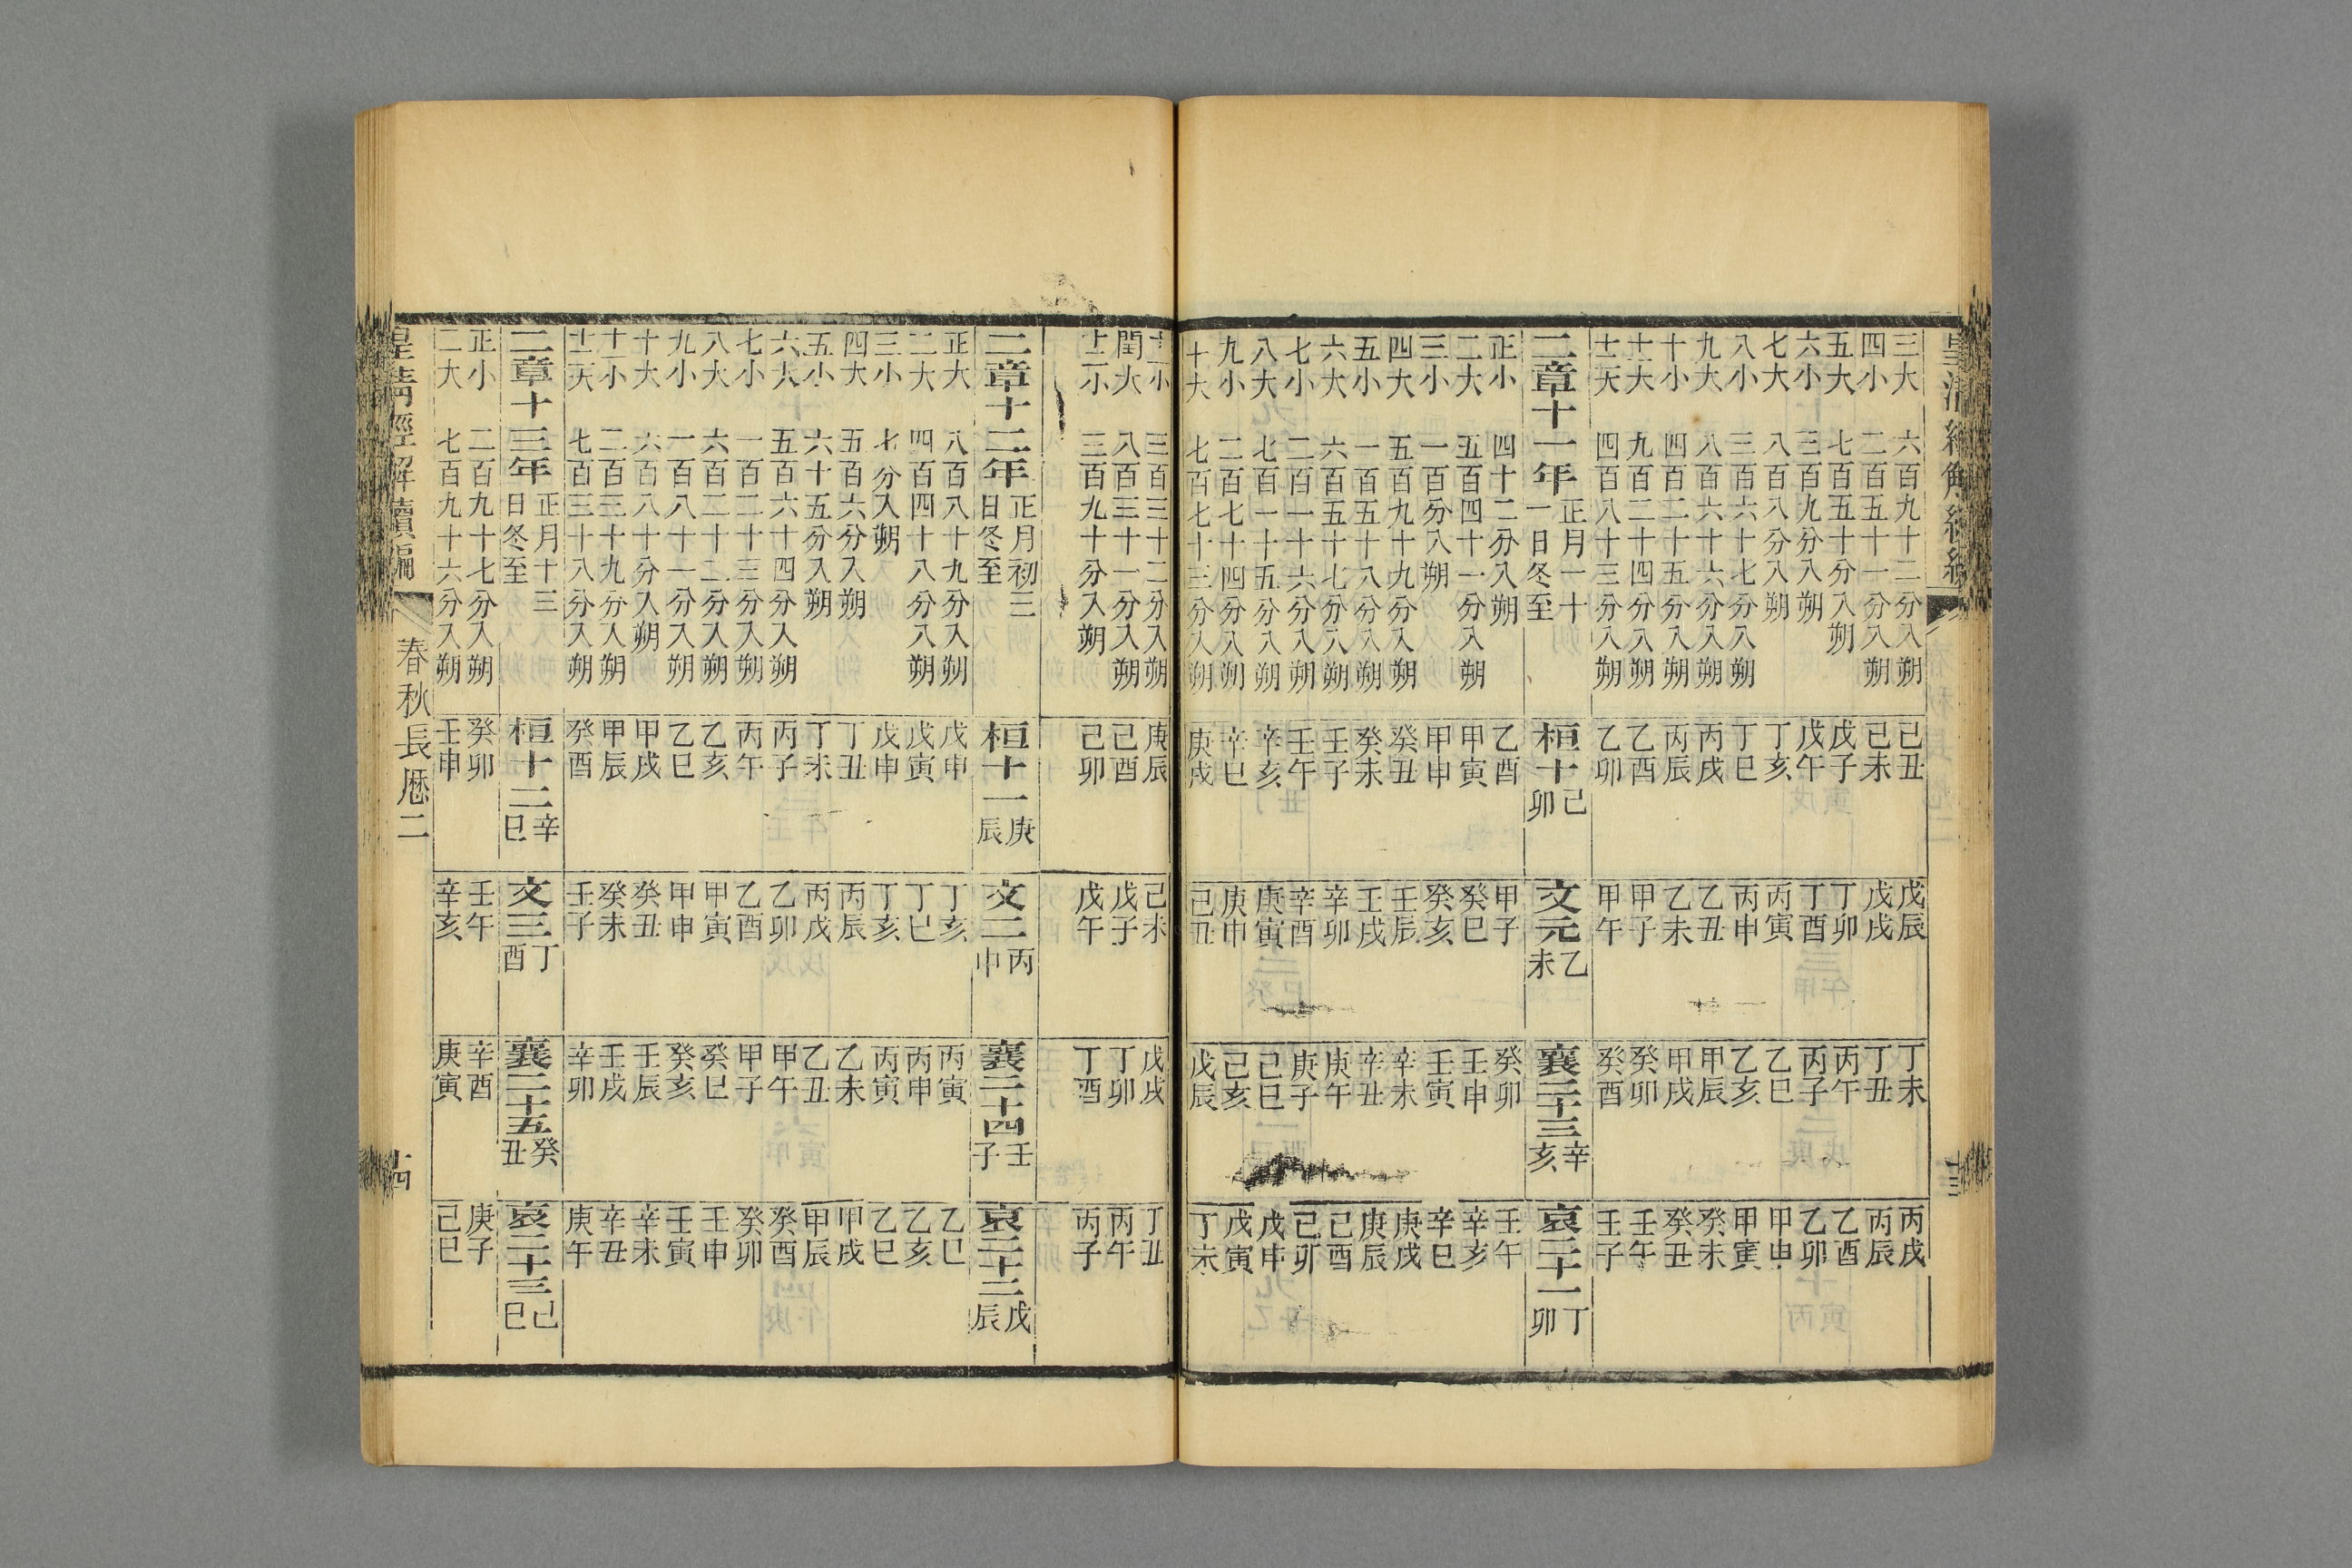 皇清經解續編 十三
三大 六百九十二分入朔 己丑 戊辰 丁未 丙戌
四小 二百五十一分入朔 己未 戊戌 丁丑 丙辰
五大 七百五十分入朔 戊子 丁卯 丙午 乙酉
六小 三百九分入朔 戊午 丁酉 丙子 乙卯
七大 八百八分入朔 丁亥 丙寅 乙巳 甲申
八小 三百六十七分入朔 丁巳 丙申 乙亥 甲寅
九大 八百六十六分入朔 丙戌 乙丑 甲辰 癸未
十小 四百二十五分入朔 丙辰 乙未 甲戌 癸丑
十一大 九百二十四分入朔 乙酉 甲子 癸卯 壬午
十二大 四百八十三分入朔 乙卯 甲午 癸酉 壬子
二章十一年 正月一十一日冬至 桓十己卯 文元乙未 襄二十三辛亥 哀二十一丁卯
正小 四十二分入朔 乙酉 甲子 癸卯 壬午
二大 五百四十一分入朔 甲寅 癸巳 壬申 辛亥
三小 一百分入朔 甲申 癸亥 壬寅 辛巳
四大 五百九十九分入朔 癸丑 壬辰 辛未 庚戌
五小 一百五十八分入朔 癸未 壬戌 辛丑 庚辰
六大 六百五十七分入朔 壬子 辛卯 庚午 己酉
七小 二百一十六分入朔 壬午 辛酉 庚子 己卯
八大 七百一十五分入朔 辛亥 庚寅 己巳 戊申
九小 二百七十四分入朔 辛巳 庚申 己亥 戊寅
十大 七百七十三分入朔 庚戌 己丑 戊辰 丁未
十一小 三百三十二分入朔 庚辰 己未 戊戌 丁丑
閏大 八百三十一分入朔 己酉 戊子 丁卯 丙午
十二小 三百九十分入朔 己卯 戊午 丁酉 丙子
二章十二年 正月初三日冬至 桓十一庚辰 文二丙申 襄二十四壬子 哀二十二戊辰
正大 八百八十九分入朔 戊申 丁亥 丙寅 乙巳
二大 四百四十八分入朔 戊寅 丁巳 丙申 乙亥
三小 七分入朔 戊申 丁亥 丙寅 乙巳
四大 五百六分入朔 丁丑 丙辰 乙未 甲戌
五小 六十五分入朔 丁未 丙戌 乙丑 甲辰
六大 五百六十四分入朔 丙子 乙卯 甲午 癸酉
七小 一百二十三分入朔 丙午 乙酉 甲子 癸卯
八大 六百二十二分入朔 乙亥 甲寅 癸巳 壬申
九小 一百八十一分入朔 乙巳 甲申 癸亥 壬寅
十大 六百八十分入朔 甲戌 癸丑 壬辰 辛未
十一小 二百三十九分入朔 甲辰 癸未 壬戌 辛丑
十二大 七百三十八分入朔 癸酉 壬子 辛卯 庚午
二章十三年 正月十三日冬至 桓十二辛巳 文三丁酉 襄二十五癸丑 哀二十三己巳
正小 二百九十七分入朔 癸卯 壬午 辛酉 庚子
二大 七百九十六分入朔 壬申 辛亥 庚寅 己巳
皇清經解續編 春秋長厯二 十四